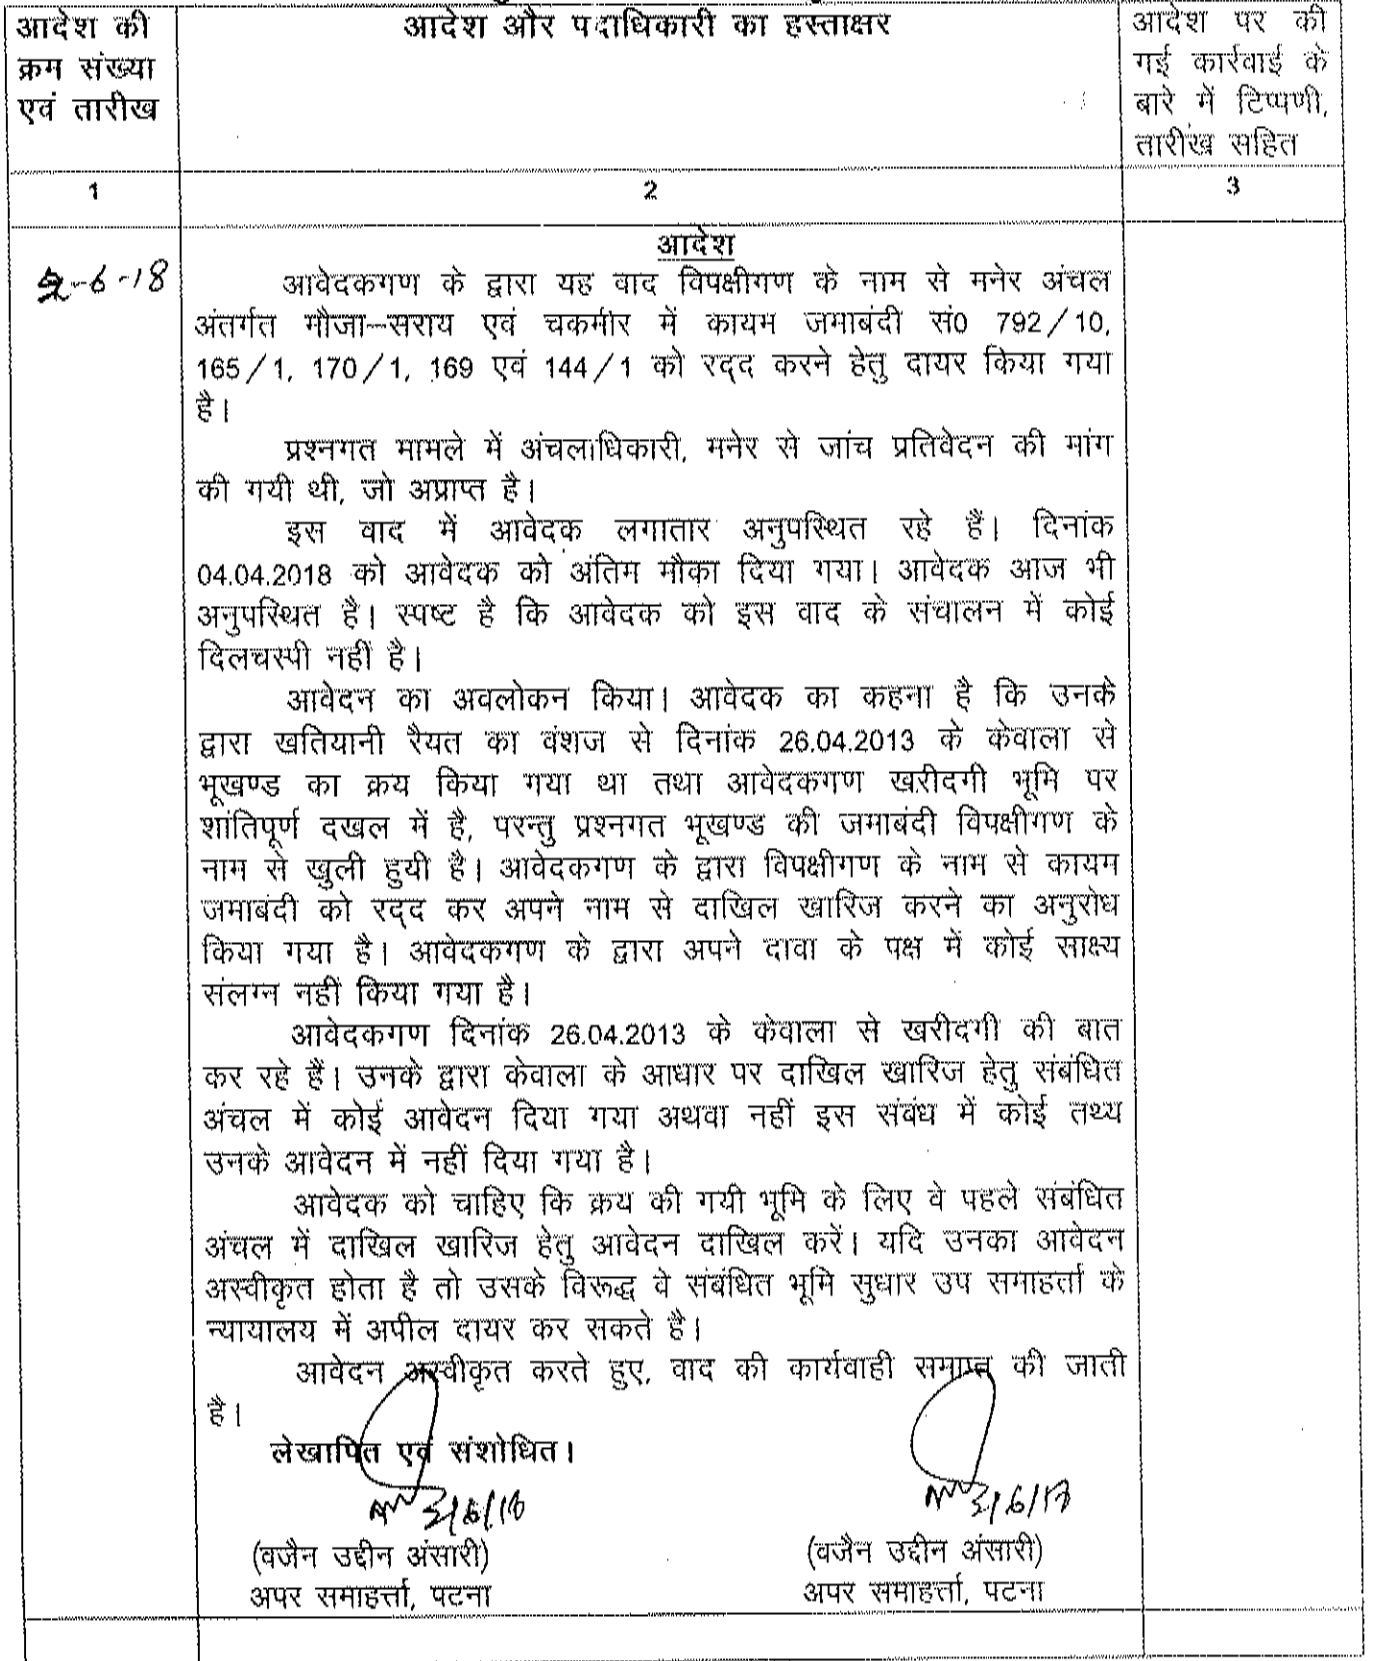 आदेश की
क्रम संख्या
एवं तारीख
आदेश और पदाधिकारी का हस्ताक्षर
आदेश पर की
गई कार्रवाई के
बारे में टिप्पणी,
तारीख सहित
1
2
3
आदेश
-6-18
आवेदकगण के द्वारा यह वाद विपक्षीगण के नाम से मनेर अंचल
अंतर्गत मौजा–सराय एवं चकमीर में कायम जमाबंदी सं0 792/10,
165/1, 170/1, 169 एवं 144/1 को रद्द करने हेतु दायर किया गया
है।
प्रश्नगत मामले में अंचलाधिकारी, मनेर से जांच प्रतिवेदन की मांग
की गयी थी, जो अप्राप्त है।
इस वाद में आवेदक लगातार अनुपस्थित रहे हैं। दिनांक
04.04.2018 को आवेदक को अंतिम मौका दिया गया। आवेदक आज भी
अनुपस्थित है। स्पष्ट है कि आवेदक को इस वाद के संचालन में कोई
दिलचस्पी नहीं है।
आवेदन का अवलोकन किया। आवेदक का कहना है कि उनके
द्वारा खतियानी रैयत का वंशज से दिनांक 26.04.2013 के केवाला से
भूखण्ड का क्रय किया गया था तथा आवेदकगण खरीदगी भूमि पर
शांतिपूर्ण दखल में है, परन्तु प्रश्नगत भूखण्ड की जमाबंदी विपक्षीगण के
नाम से खुली हुयी है। आवेदकगण के द्वारा विपक्षीगण के नाम से कायम
जमाबंदी को रद्द कर अपने नाम से दाखिल खारिज करने का अनुरोध
किया गया है। आवेदकगण के द्वारा अपने दावा के पक्ष में कोई साक्ष्य
संलग्न नहीं किया गया है।
आवेदकगण दिनांक 26.04.2013 के केवाला से खरीदगी की बात
कर रहे हैं। उनके द्वारा केवाला के आधार पर दाखिल खारिज हेतु संबंधित
अंचल में कोई आवेदन दिया गया अथवा नहीं इस संबंध में कोई तथ्य
उनके आवेदन में नहीं दिया गया है।
आवेदक को चाहिए कि क्रय की गयी भूमि के लिए वे पहले संबंधित
अंचल में दाखिल खारिज हेतु आवेदन दाखिल करें। यदि उनका आवेदन
अस्वीकृत होता है तो उसके विरूद्ध वे संबंधित भूमि सुधार उप समाहर्ता के
न्यायालय में अपील दायर कर सकते है।
आवेदन अस्वीकृत करते हुए, वाद की कार्यवाही समाप्त की जाती
है।
लेखापित एवं संशोधित।
(वजैन उद्दीन अंसारी)
अपर समाहर्त्ता, पटना
(वजैन उद्दीन अंसारी)
अपर समाहर्त्ता, पटना